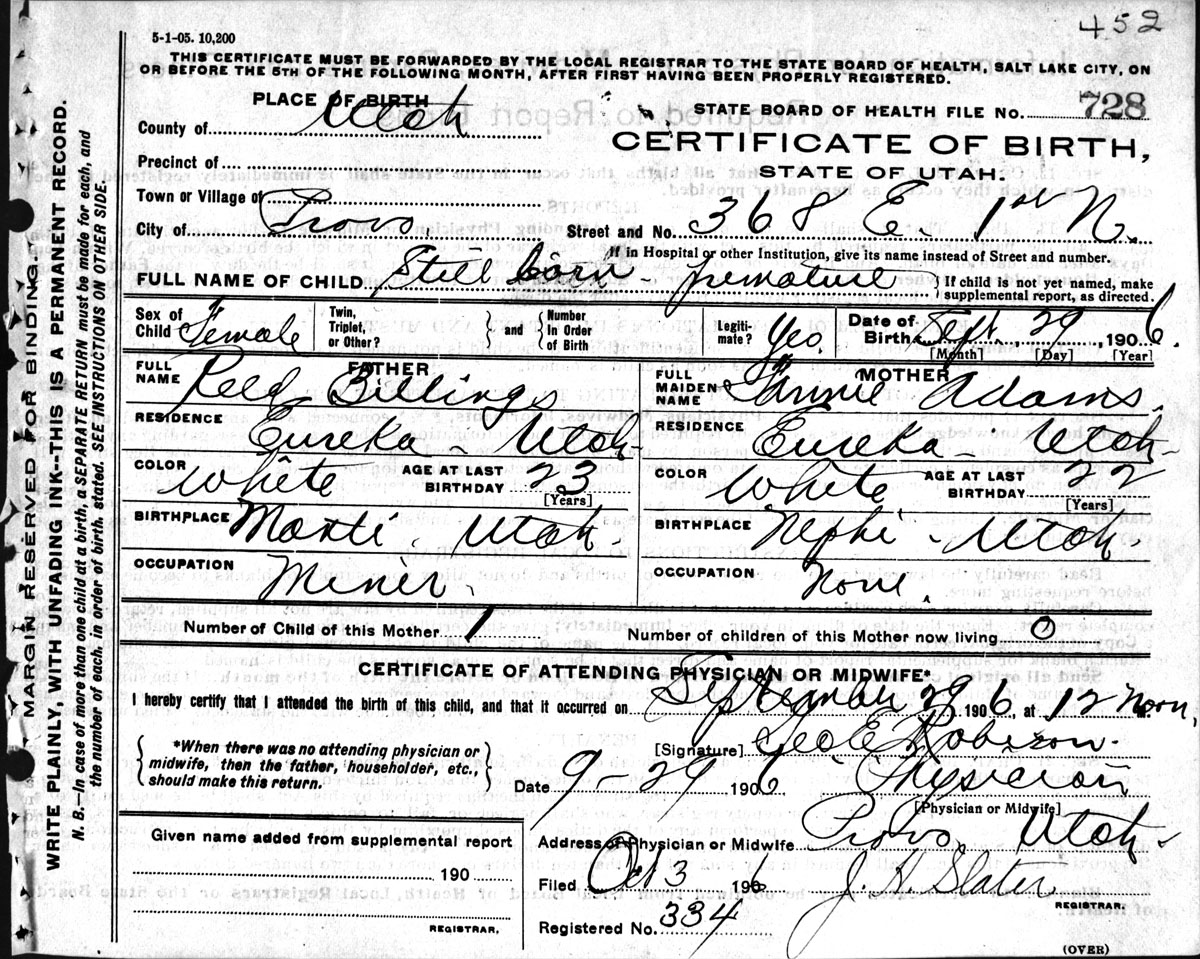 452
5-1-05. 10,200
THIS CERTIFICATE MUST BE FORWARDED BY THE LOCAL REGISTRAR TO THE STATE BOARD OF HEALTH, SALT LAKE CITY, ON
OR BEFORE THE 5TH OF THE FOLLOWING MONTH, AFTER FIRST HAVING BEEN PROPERLY REGISTERED.
PLACE OF BIRTH
STATE BOARD OF HEALTH FILE NO. 728
County of Utah
CERTIFICATE OF BIRTH,
STATE OF UTAH.
Precinct of
Town or Village of
City of Provo Street and No. 368 E. 1st N.
If in Hospital or other Institution, give its name instead of Street and number.
FULL NAME OF CHILD Still born - premature } If child is not yet named, make supplemental report, as directed.
Sex of Child Female Twin, Triplet, or Other? } and { Number In Order of Birth Legiti-mate? Yes. Date of Birth Sept. 29, 1906
[Month] [Day] [Year]
FATHER MOTHER
FULL NAME Reed Billings FULL MAIDEN NAME Fannie Adams.
RESIDENCE Eureka - Utah RESIDENCE Eureka - Utah -
COLOR White AGE AT LAST BIRTHDAY 23 COLOR White AGE AT LAST BIRTHDAY 22
[Years] [Years]
BIRTHPLACE Manti - Utah - BIRTHPLACE Nephi - Utah -
OCCUPATION Miner. OCCUPATION None.
Number of Child of this Mother 1 Number of children of this Mother now living 0
CERTIFICATE OF ATTENDING PHYSICIAN OR MIDWIFE*
I hereby certify that I attended the birth of this child, and that it occurred on September 29 1906, at 12 Noon,
{ *When there was no attending physician or midwife, then the father, householder, etc., should make this return. }
[Signature] Geo E Robison.
Date 9-29 1906 Physician
[Physician or Midwife]
Given name added from supplemental report
Address of Physician or Midwife Provo, Utah -
190
Filed Oct 3 1906 J. H. Slater
REGISTRAR.
REGISTRAR.
Registered No. 334
(OVER)
MARGIN RESERVED FOR BINDING.
WRITE PLAINLY, WITH UNFADING INK--THIS IS A PERMANENT RECORD.
N. B.—In case of more than one child at a birth, a SEPARATE RETURN must be made for each, and
the number of each, in order of birth, stated. SEE INSTRUCTIONS ON OTHER SIDE.